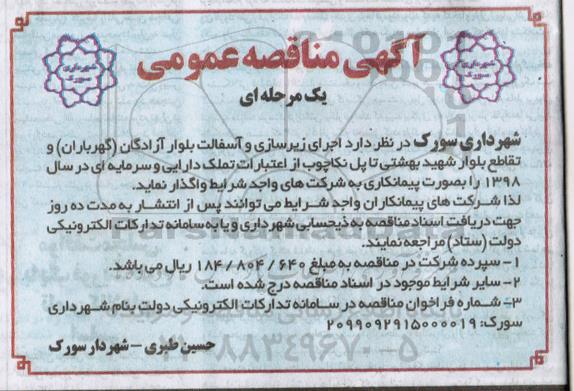 آگهی مناقصه عمومی
یک مرحله ای
شهرداری سورک
شهرداری سورک
شهرداری سورک در نظر دارد اجرای زیرسازی و آسفالت بلوار آزادگان (گهرباران) و
تقاطع بلوار شهید بهشتی تا پل نکاچوب از اعتبارات تملک دارایی و سرمایه ای در سال
۱۳۹۸ را بصورت پیمانکاری به شرکت های واجد شرایط واگذار نماید.
لذا شرکت های پیمانکاران واجد شرایط می توانند پس از انتشار به مدت ده روز
جهت دریافت اسناد مناقصه به ذیحسابی شهرداری و یا به سامانه تدارکات الکترونیکی
دولت (ستاد) مراجعه نمایند.
۱- سپرده شرکت در مناقصه به مبلغ ۱۸۴/۸۰۴/۶۴۰ ریال می باشد.
۲- سایر شرایط موجود در اسناد مناقصه درج شده است.
۳- شماره فراخوان مناقصه در سامانه تدارکات الکترونیکی دولت بنام شهرداری
سورک: ۲۰۹۹۰۹۲۹۱۵۰۰۰۰۱۹
حسین طبری - شهردار سورک
۰۲۱-۸۸۳۴۹۶۷۰-۵